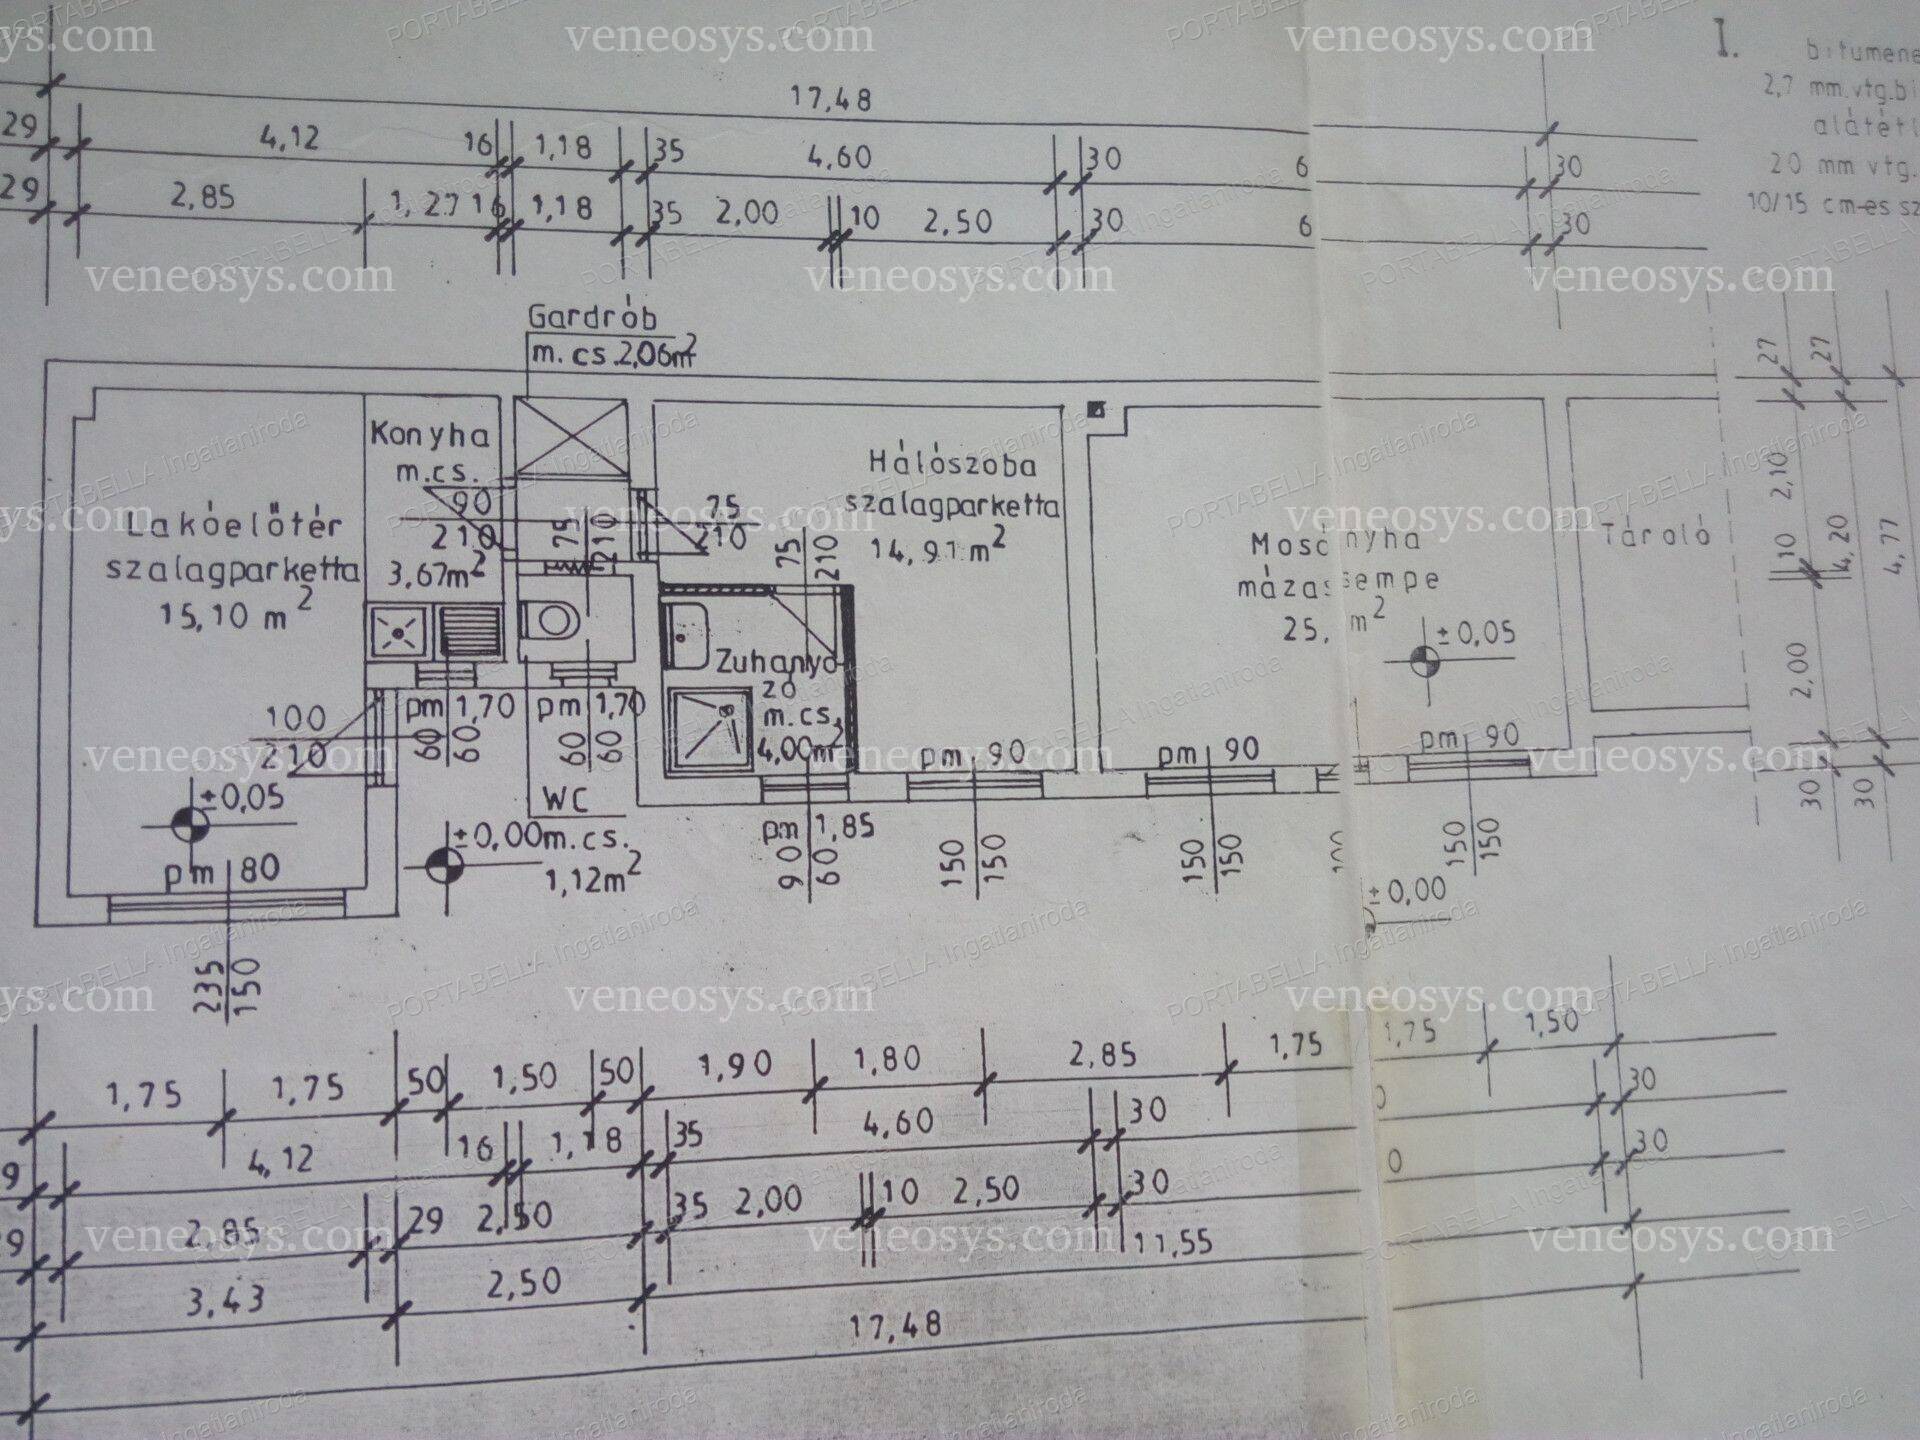 17,48
29 4,12 16 1,18 35 4,60 30 6 30
29 2,85 1,27 16 1,18 35 2,00 10 2,50 30 6 30
I.
bitumene
2,7 mm.vtg.bi
alátétl
20 mm vtg.
10/15 cm-es sz
Gardrób
m. cs. 2,06m²
Konyha
m.cs.
90
210
3,67m²
Lakóelőtér
szalagparketta
15,10 m²
100
210
±0,05
pm 80
235
150
75
210
75
210
75
210
Hálószoba
szalagparketta
14,91 m²
Zuhanyo
zó
m.cs.
4,00m²
pm 1,70
60
60
pm 1,70
60
60
WC
m.cs.
1,12m²
±0,00
pm 1,85
90
60
pm 90
150
150
pm 90
150
150
Mosó nyha
mázas sempe
25, m²
±0,05
pm 90
150
150
±0,00
Tároló
27 27
2,10
10
4,20
4,77
2,00
30 30
1,75 1,75 50 1,50 50 1,90 1,80 2,85 1,75 1,75 1,50
9 4,12 16 1,18 35 4,60 30 30
9 2,85 29 2,50 35 2,00 10 2,50 30 0 30
3,43 2,50 11,55
17,48
veneosys.com
PORTABELLA Ingatlaniroda